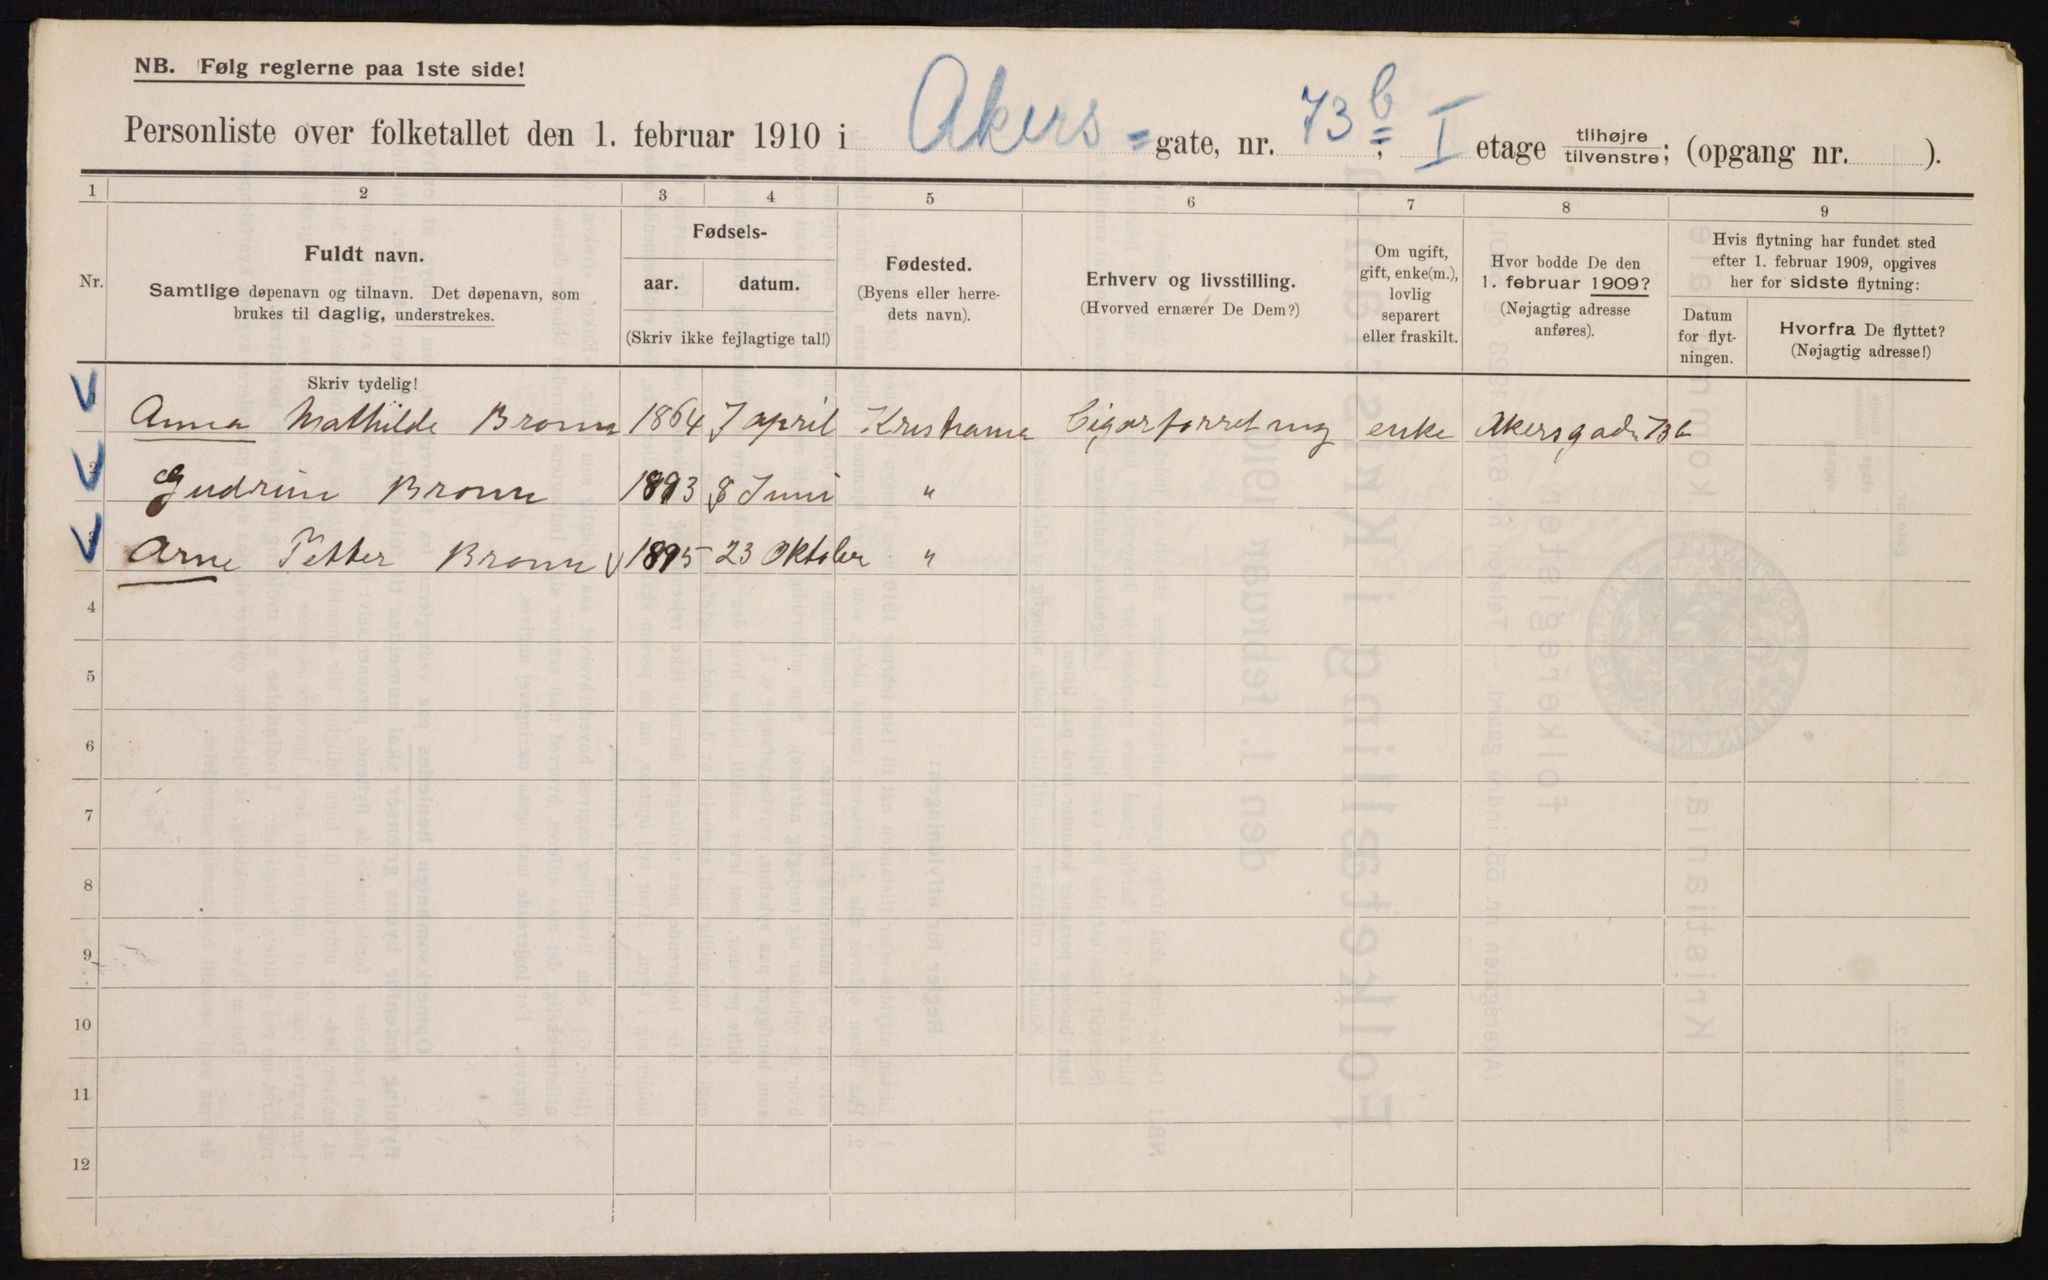 NB. Følg reglerne paa 1ste side!
Personliste over folketallet den 1. februar 1910 i Akers=gate, nr. 73b=, I etage tilhøjre/tilvenstre; (opgang nr. ).
1 2 3 4 5 6 7 8 9
Nr.
Fuldt navn.
Samtlige døpenavn og tilnavn. Det døpenavn, som
brukes til daglig, understrekes.
Fødsels-
aar. datum.
(Skriv ikke fejlagtige tal!)
Fødested.
(Byens eller herre-
dets navn).
Erhverv og livsstilling.
(Hvorved ernærer De Dem?)
Om ugift,
gift, enke(m.),
lovlig
separert
eller fraskilt.
Hvor bodde De den
1. februar 1909?
(Nøjagtig adresse
anføres).
Hvis flytning har fundet sted
efter 1. februar 1909, opgives
her for sidste flytning:
Datum
for flyt-
ningen.
Hvorfra De flyttet?
(Nøjagtig adresse!)
Skriv tydelig!
Anna Mathilde Bronn 1864 7 april Kristiania Cigarforretning enke Akersgade 73b
2 Gudrun Bronn 1893 8 Juni "
3 Arne Petter Bronn 1895 23 Oktober "
4
5
6
7
8
9
10
11
12